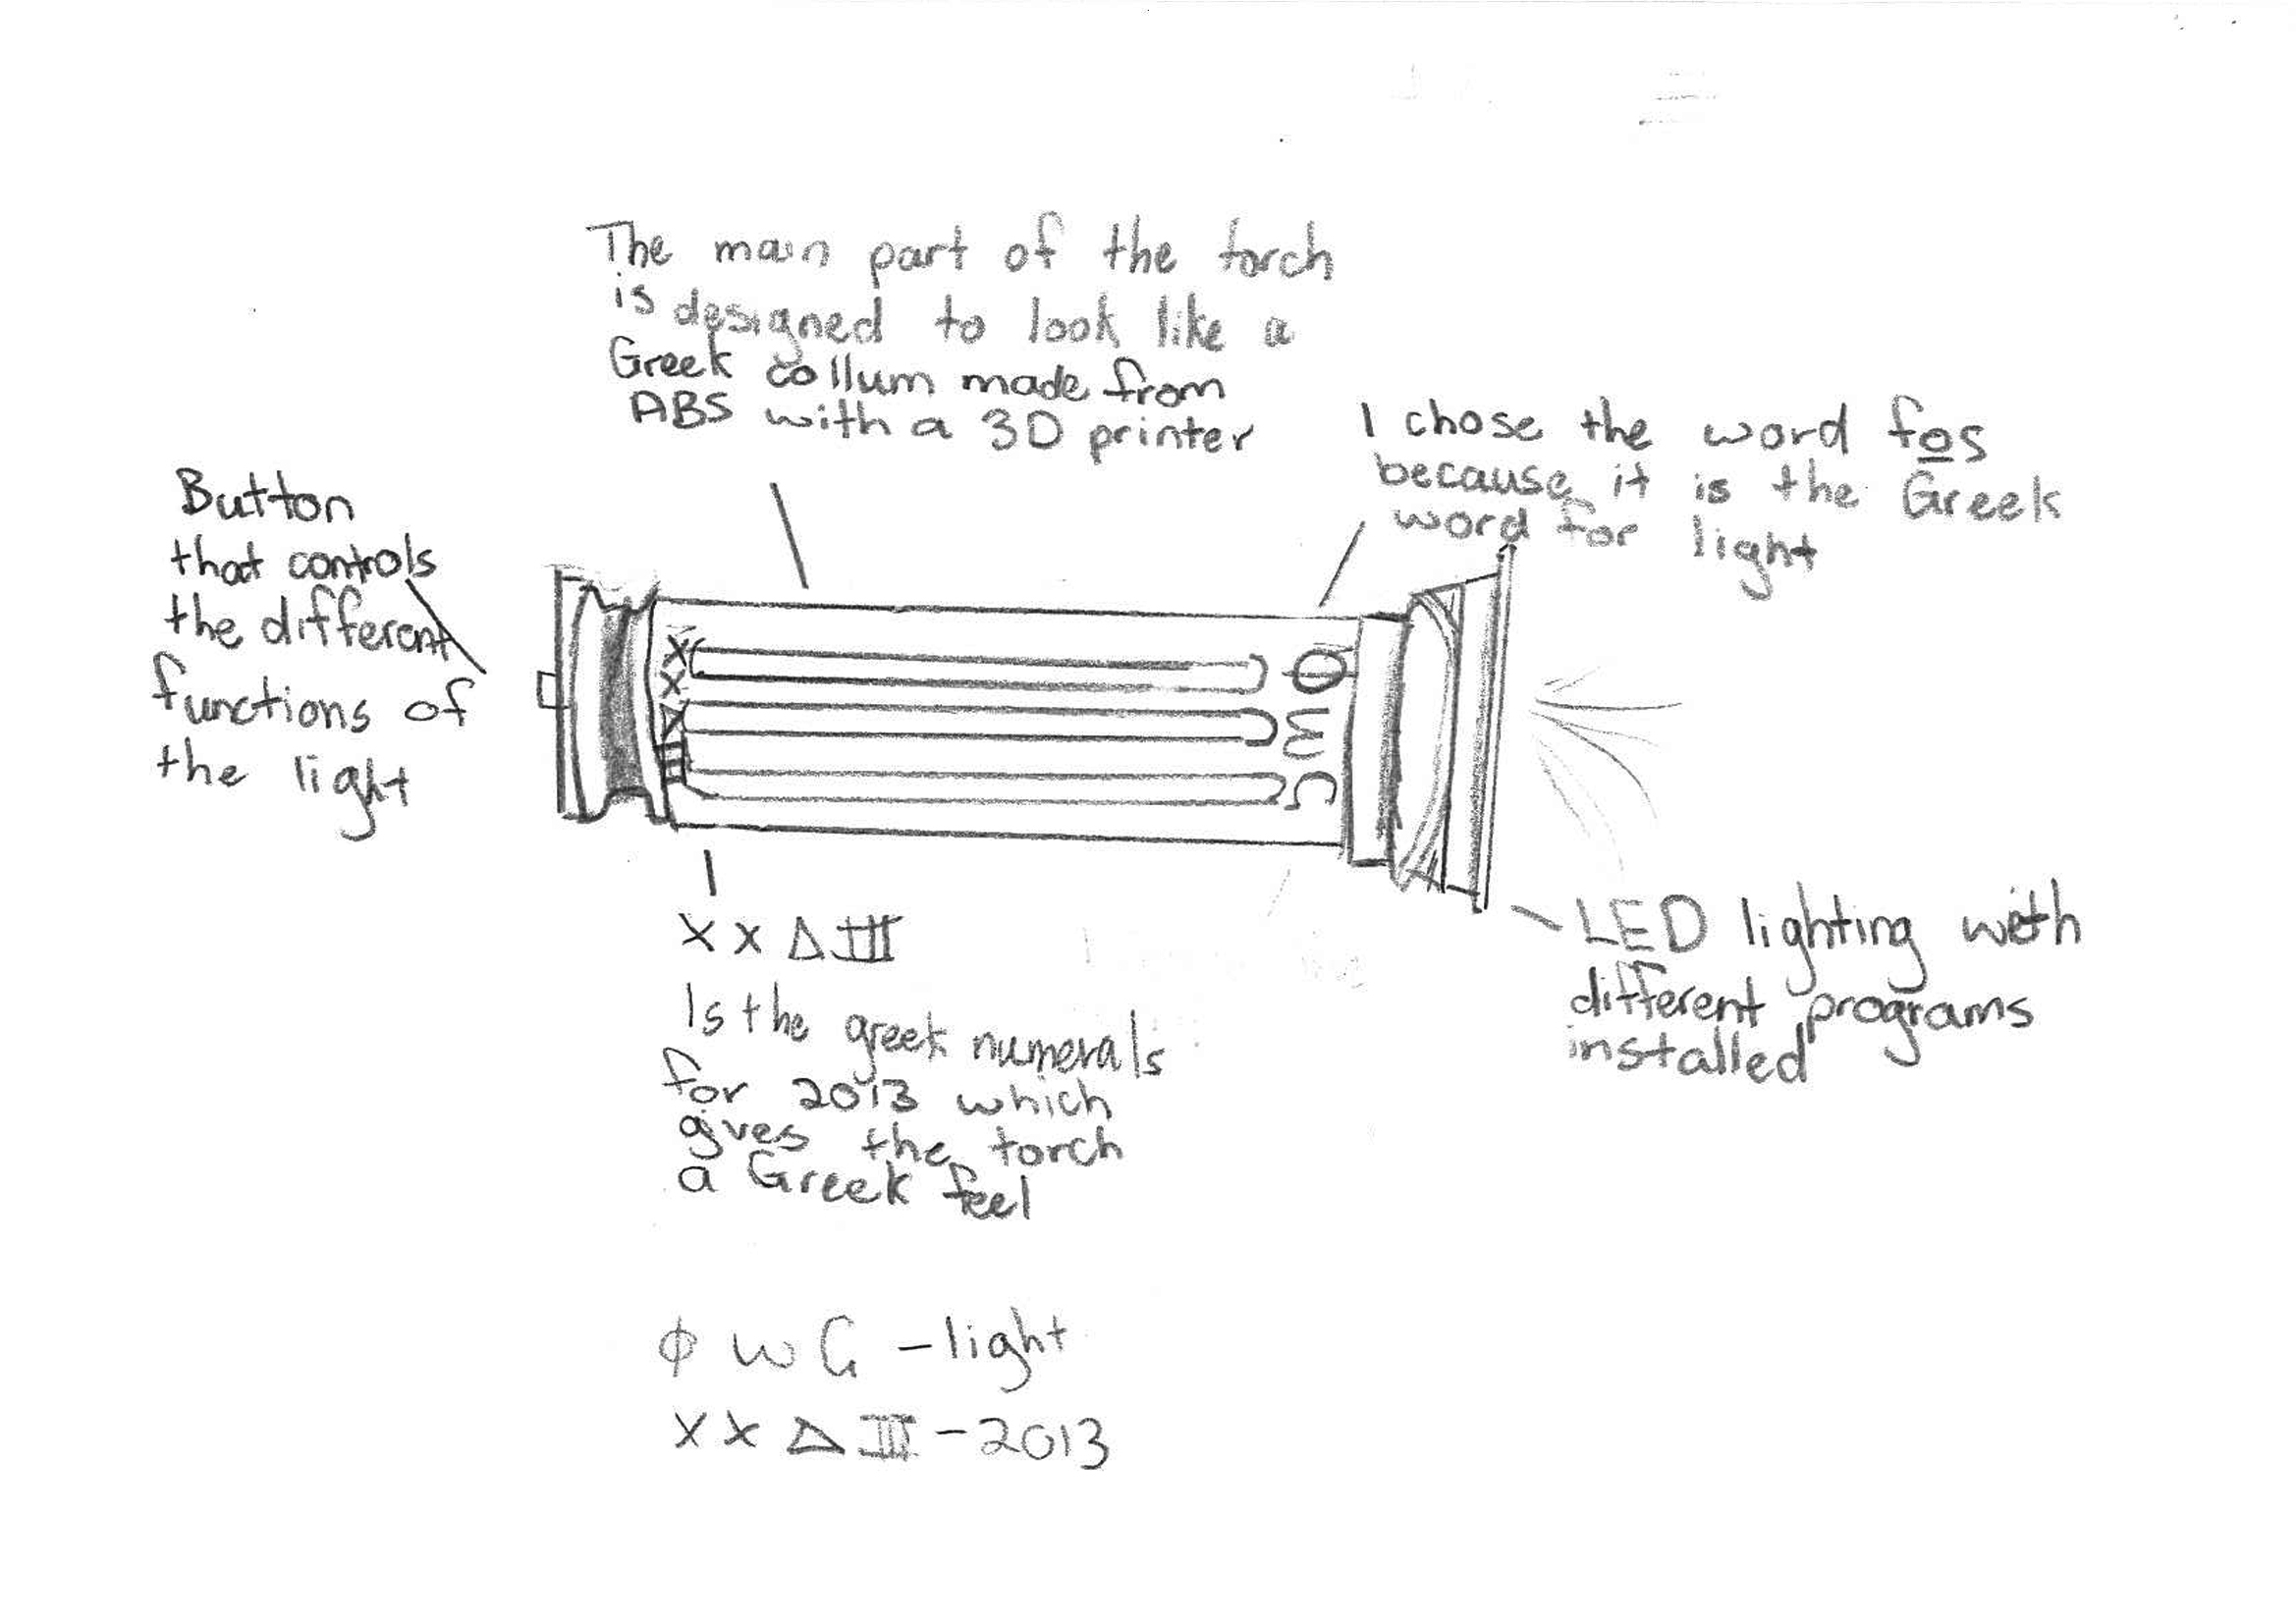 The main part of the torch
is designed to look like a
Greek collum made from
ABS with a 3D printer
I chose the word fos
because it is the Greek
word for light
Button
that controls
the different
functions of
the light
XX
φως
XXΔIII
Is the greek numerals
for 2013 which
gives the torch
a Greek feel
LED lighting with
different programs
installed
φ w ς - light
XXΔIII - 2013